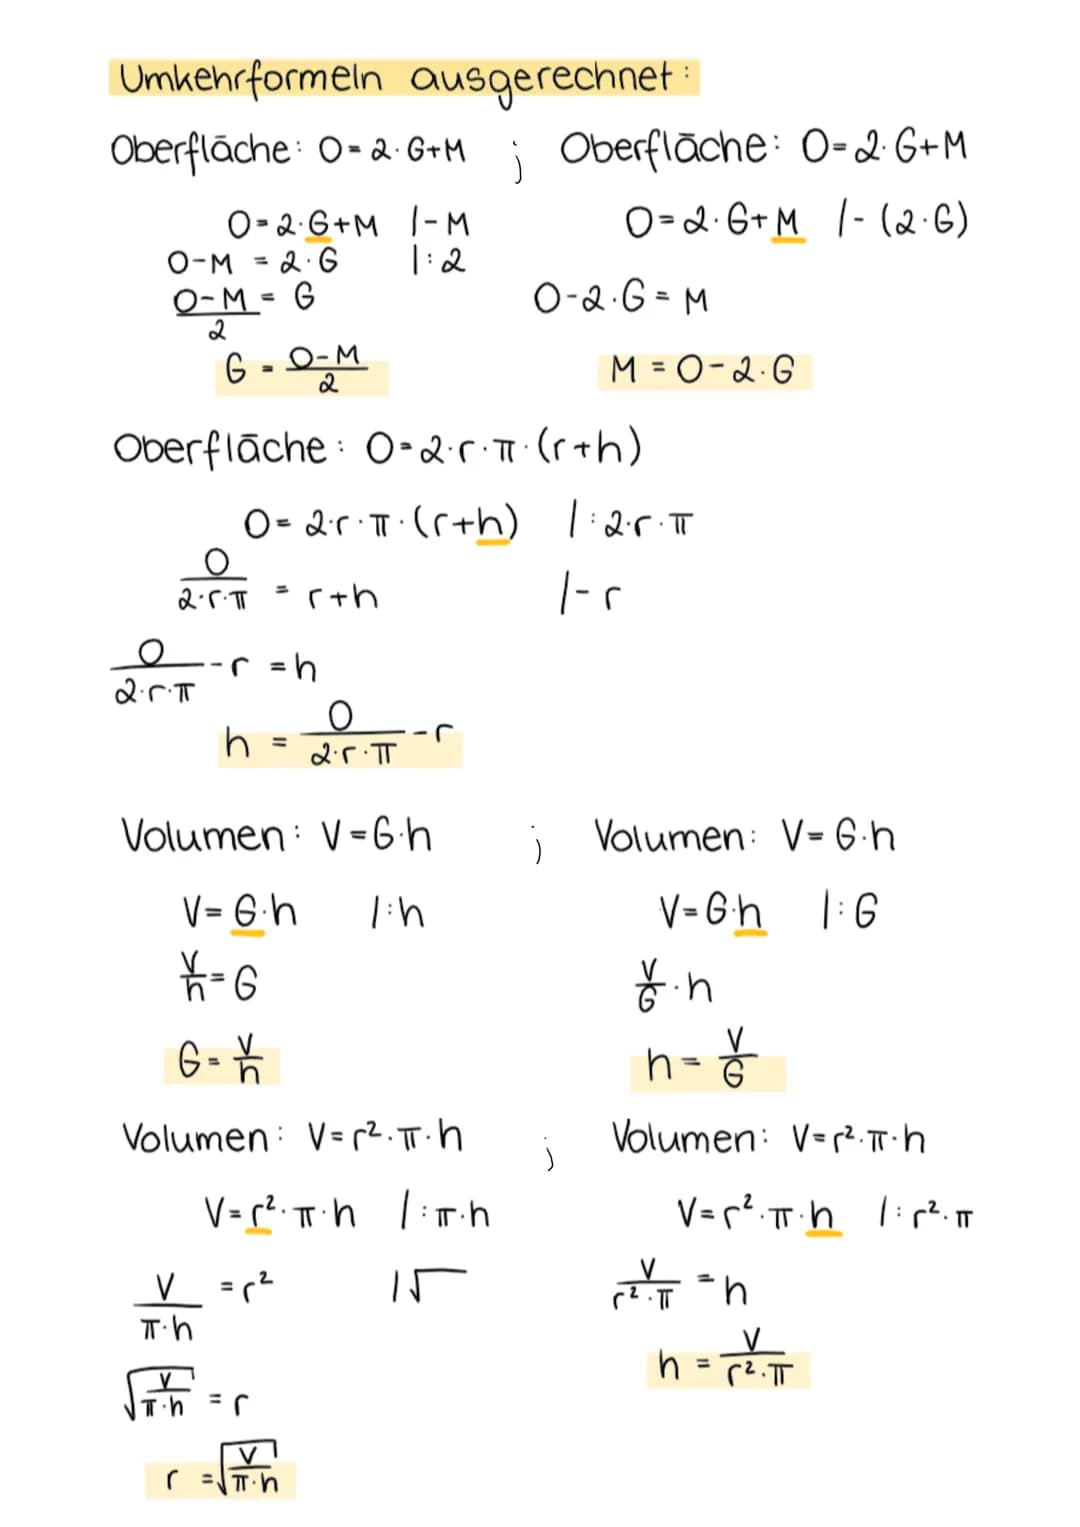 Umkehrformeln ausgerechnet:
Oberfläche: O = 2·G+M ; Oberfläche: O = 2·G+M
O = 2·G+M |-M
O-M = 2·G |:2
O-M/2 = G
G = O-M/2
O = 2·G+M |-(2·G)
O-2·G = M
M = O-2·G
Oberfläche: O = 2·r·π·(r+h)
O = 2·r·π·(r+h) |:2·r·π
O/2·r·π = r+h |-r
O/2·r·π -r = h
h = O/2·r·π -r
Volumen: V = G·h ; Volumen: V = G·h
V = G·h |:h
V/h = G
G = V/h
V = G·h |:G
V/G · h
h = V/G
Volumen: V = r²·π·h ; Volumen: V = r²·π·h
V = r²·π·h |:π·h
V/π·h = r² |√
√V/π·h = r
r = √V/π·h
V = r²·π·h |:r²·π
V/r²·π = h
h = V/r²·π